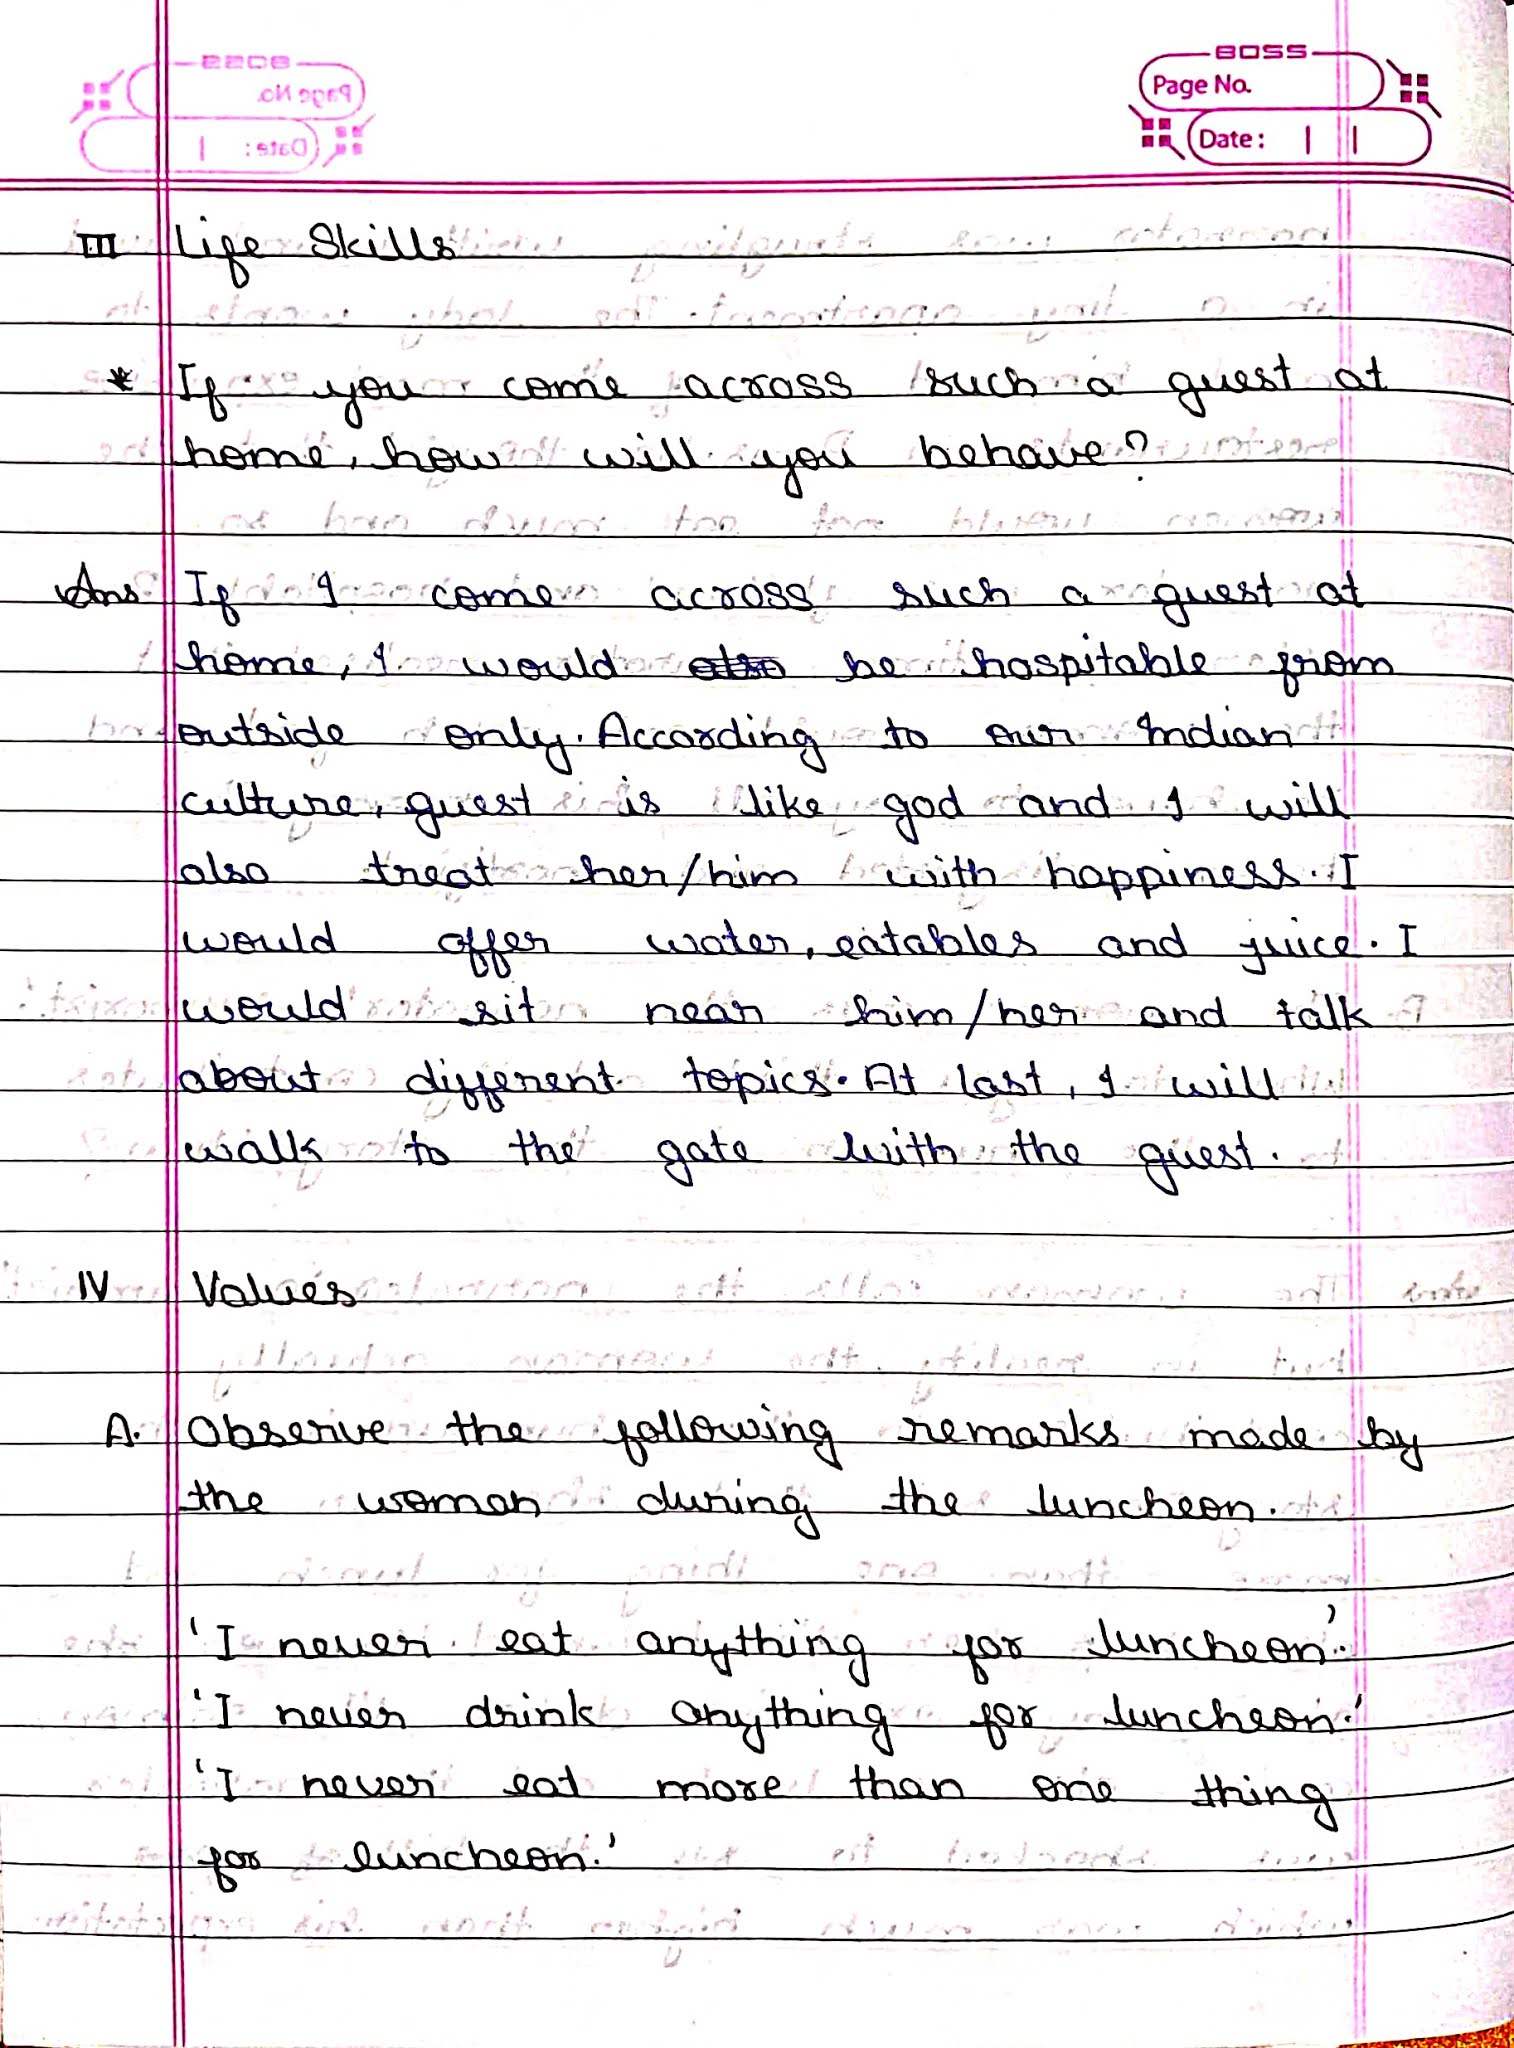 BOSS
Page No.
Date:
III Life Skills
* If you come across such a guest at
home, how will you behave?
Ans If I come across such a guest at
home, I would be hospitable from
outside only. According to our Indian
culture, guest is like god and I will
also treat her/him with happiness. I
would offer water, eatables and juice. I
would sit near him/her and talk
about different topics. At last, I will
walk to the gate with the guest.
IV Values
A. Observe the following remarks made by
the woman during the luncheon.
'I never eat anything for luncheon.'
'I never drink anything for luncheon.'
'I never eat more than one thing
for luncheon.'